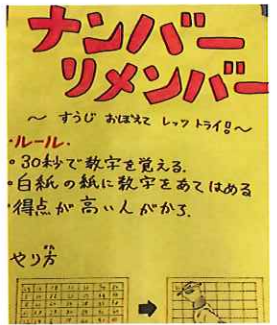 ナンバー
リメンバー
～ すうじ おぼえて レッツ トライ!! ～
・ルール・
・30秒で数字を覚える.
・白紙の紙に数字をあてはめる
・得点が高い人がかち.
やり方